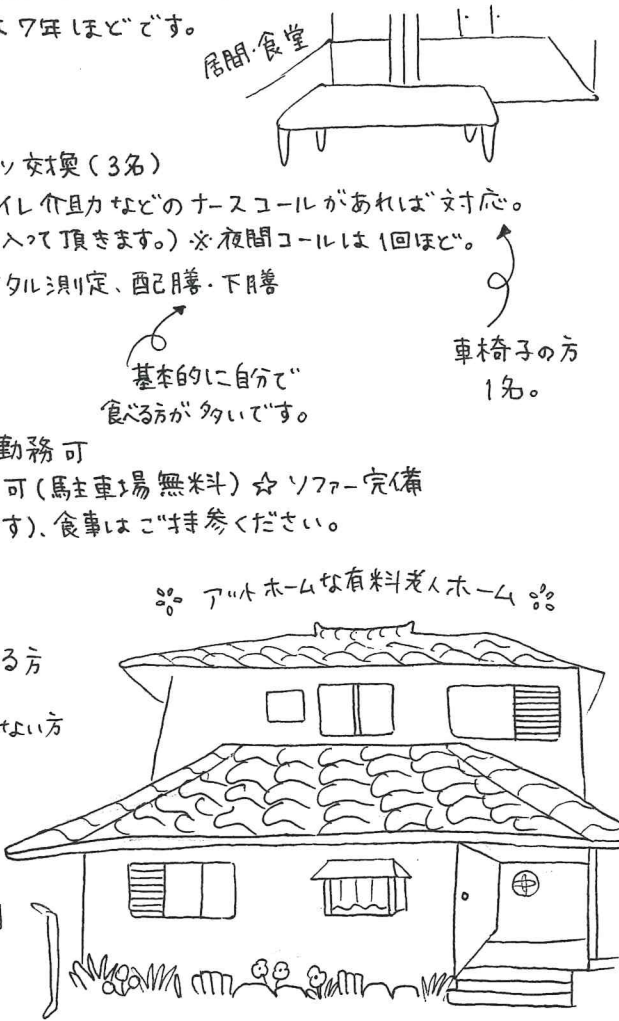 は7年ほどです。
居間・食堂
ツ交換(3名)
イレ介助などのナースコールがあれば対応。
入って頂きます。)※夜間コールは1回ほど。
タル測定、配膳・下膳
車椅子の方
1名。
基本的に自分で
食べる方が多いです。
勤務可
可(駐車場無料)☆ソファー完備
す)、食事はご持参ください。
アットホームな有料老人ホーム
る方
せない方